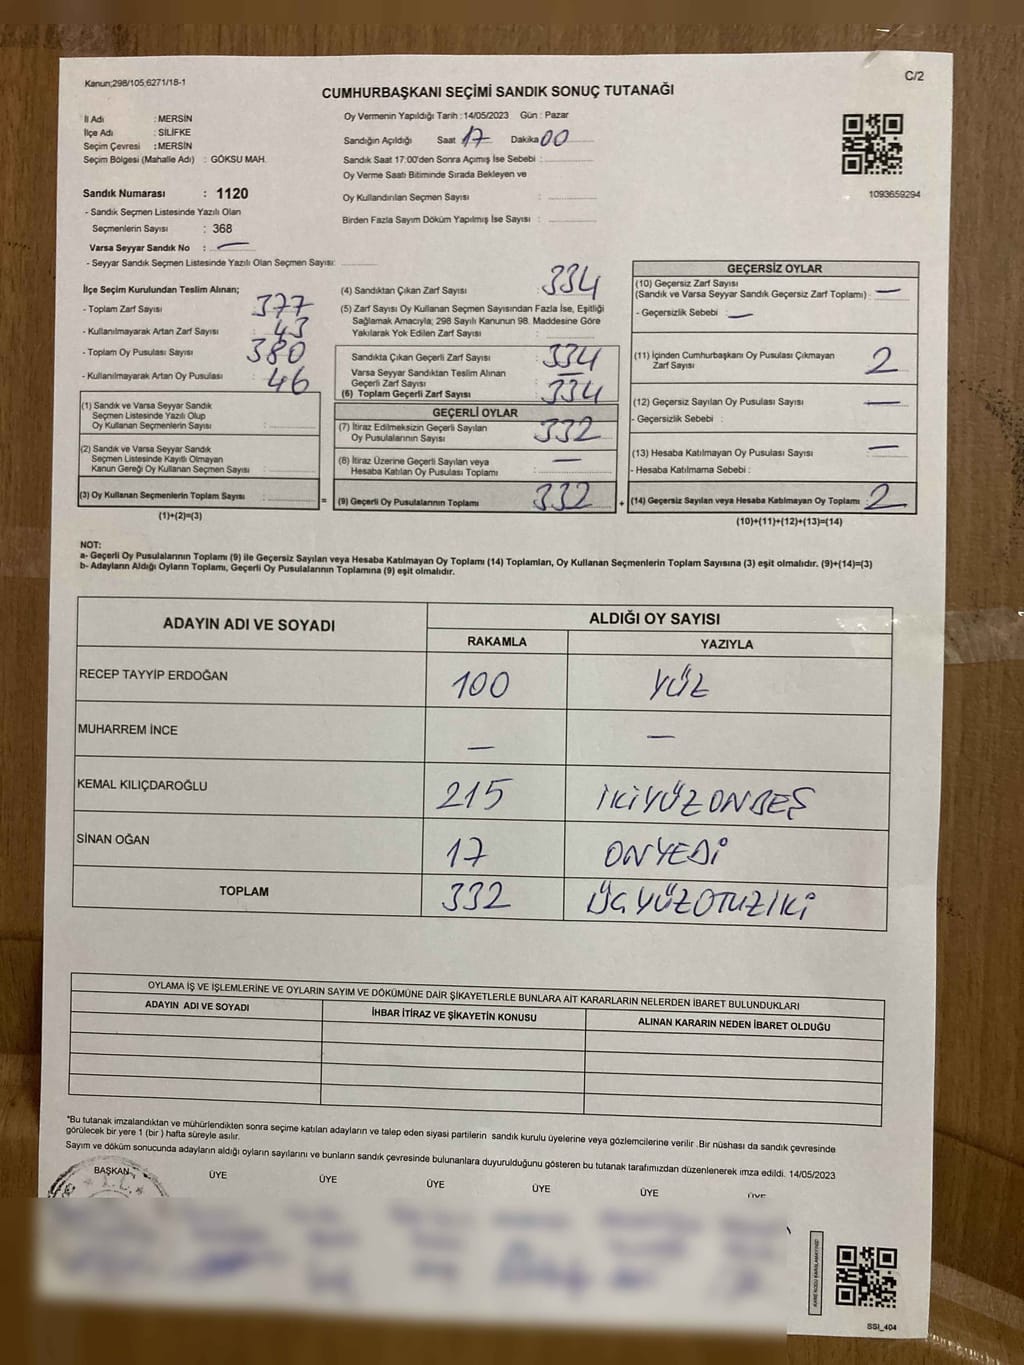 Kanun;298/105;6271/18-1
C/2
CUMHURBAŞKANI SEÇİMİ SANDIK SONUÇ TUTANAĞI
İl Adı : MERSİN
İlçe Adı : SİLİFKE
Seçim Çevresi : MERSİN
Seçim Bölgesi (Mahalle Adı) : GÖKSU MAH.
Sandık Numarası : 1120
- Sandık Seçmen Listesinde Yazılı Olan
Seçmenlerin Sayısı : 368
Varsa Seyyar Sandık No : —
- Seyyar Sandık Seçmen Listesinde Yazılı Olan Seçmen Sayısı:
Oy Vermenin Yapıldığı Tarih : 14/05/2023 Gün : Pazar
Sandığın Açıldığı Saat 17 Dakika 00
Sandık Saat 17:00'den Sonra Açımış İse Sebebi :
Oy Verme Saati Bitiminde Sırada Bekleyen ve
Oy Kullandırılan Seçmen Sayısı :
Birden Fazla Sayım Döküm Yapılmış İse Sayısı :
1093659294
İlçe Seçim Kurulundan Teslim Alınan;
- Toplam Zarf Sayısı : 377
- Kullanılmayarak Artan Zarf Sayısı : 43
- Toplam Oy Pusulası Sayısı : 380
- Kullanılmayarak Artan Oy Pusulası : 46
(1) Sandık ve Varsa Seyyar Sandık
Seçmen Listesinde Yazılı Olup
Oy Kullanan Seçmenlerin Sayısı :
(2) Sandık ve Varsa Seyyar Sandık
Seçmen Listesinde Kayıtlı Olmayan
Kanun Gereği Oy Kullanan Seçmen Sayısı :
(3) Oy Kullanan Seçmenlerin Toplam Sayısı :
(1)+(2)=(3)
(4) Sandıktan Çıkan Zarf Sayısı : 334
(5) Zarf Sayısı Oy Kullanan Seçmen Sayısından Fazla İse, Eşitliği
Sağlamak Amacıyla; 298 Sayılı Kanunun 98. Maddesine Göre
Yakılarak Yok Edilen Zarf Sayısı :
Sandıkta Çıkan Geçerli Zarf Sayısı : 334
Varsa Seyyar Sandıktan Teslim Alınan
Geçerli Zarf Sayısı : —
(6) Toplam Geçerli Zarf Sayısı : 334
GEÇERLİ OYLAR
(7) İtiraz Edilmeksizin Geçerli Sayılan
Oy Pusulalarının Sayısı : 332
(8) İtiraz Üzerine Geçerli Sayılan veya
Hesaba Katılan Oy Pusulası Toplamı : —
= (9) Geçerli Oy Pusulalarının Toplamı : 332 +
GEÇERSİZ OYLAR
(10) Geçersiz Zarf Sayısı
(Sandık ve Varsa Seyyar Sandık Geçersiz Zarf Toplamı) : —
- Geçersizlik Sebebi : —
(11) İçinden Cumhurbaşkanı Oy Pusulası Çıkmayan
Zarf Sayısı : 2
(12) Geçersiz Sayılan Oy Pusulası Sayısı : —
- Geçersizlik Sebebi :
(13) Hesaba Katılmayan Oy Pusulası Sayısı : —
- Hesaba Katılmama Sebebi :
(14) Geçersiz Sayılan veya Hesaba Katılmayan Oy Toplamı : 2
(10)+(11)+(12)+(13)=(14)
NOT:
a- Geçerli Oy Pusulalarının Toplamı (9) ile Geçersiz Sayılan veya Hesaba Katılmayan Oy Toplamı (14) Toplamları, Oy Kullanan Seçmenlerin Toplam Sayısına (3) eşit olmalıdır. (9)+(14)=(3)
b- Adayların Aldığı Oyların Toplamı, Geçerli Oy Pusulalarının Toplamına (9) eşit olmalıdır.
ADAYIN ADI VE SOYADI
ALDIĞI OY SAYISI
RAKAMLA YAZIYLA
RECEP TAYYİP ERDOĞAN 100 YÜZ
MUHARREM İNCE — —
KEMAL KILIÇDAROĞLU 215 İKİYÜZONBEŞ
SİNAN OĞAN 17 ONYEDİ
TOPLAM 332 ÜÇYÜZOTUZİKİ
OYLAMA İŞ VE İŞLEMLERİNE VE OYLARIN SAYIM VE DÖKÜMÜNE DAİR ŞİKAYETLERLE BUNLARA AİT KARARLARIN NELERDEN İBARET BULUNDUKLARI
ADAYIN ADI VE SOYADI İHBAR İTİRAZ VE ŞİKAYETİN KONUSU ALINAN KARARIN NEDEN İBARET OLDUĞU
*Bu tutanak imzalandıktan ve mühürlendikten sonra seçime katılan adayların ve talep eden siyasi partilerin sandık kurulu üyelerine veya gözlemcilerine verilir .Bir nüshası da sandık çevresinde
görülecek bir yere 1 (bir ) hafta süreyle asılır.
Sayım ve döküm sonucunda adayların aldığı oyların sayılarını ve bunların sandık çevresinde bulunanlara duyurulduğunu gösteren bu tutanak tarafımızdan düzenlenerek imza edildi. 14/05/2023
BAŞKAN ÜYE ÜYE ÜYE ÜYE ÜYE ÜYE
SSİ_404